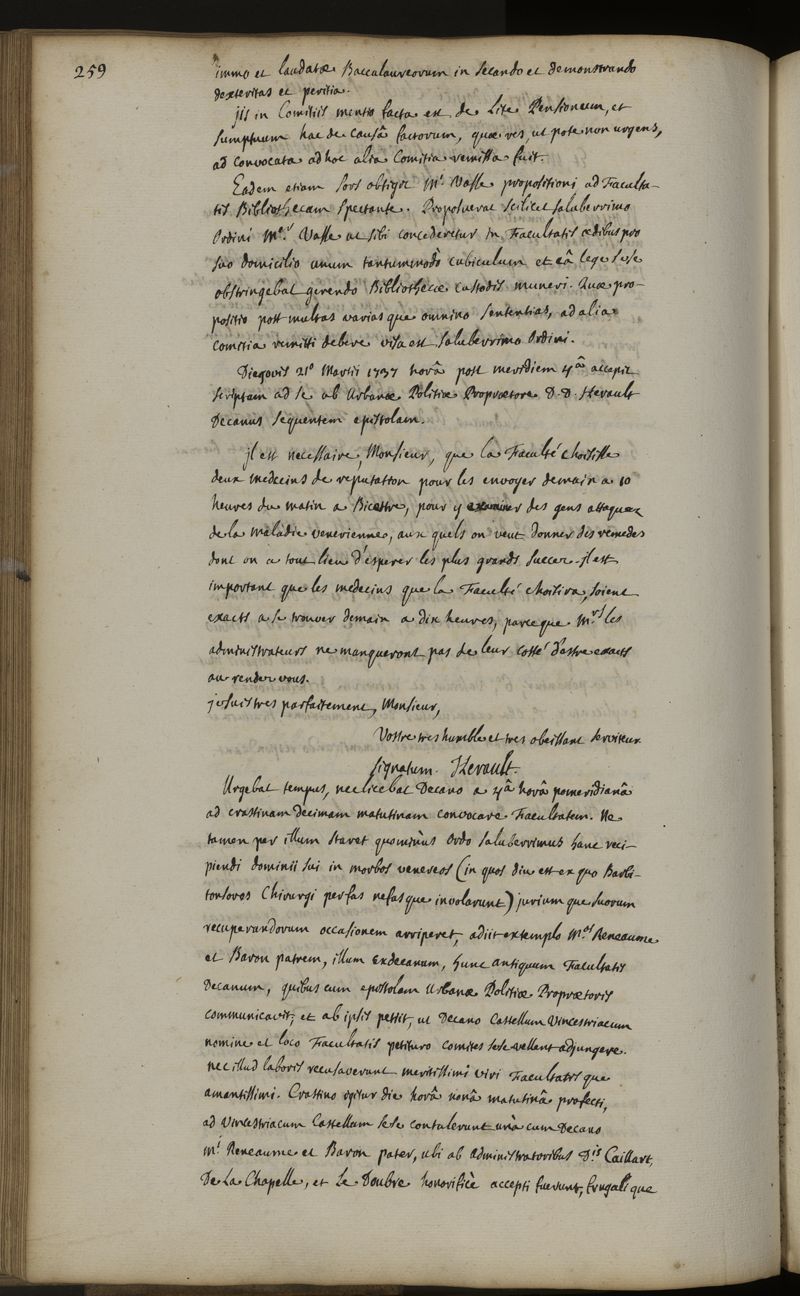 259
immo et laudatæ Baccalaureorum in secando et demonstrando
dexteritas et peritia.
jis in Comitiis mentio facta est de Lite Pensionum, et
sumptuum hac de causâ factorum, quæ res, ut pote non urgens,
ad convocata ad hoc alia Comitia remissa fuit.
Eadem etiam sors obtigit Mi Vasse propositioni ad Faculta-
tis Bibliothecam spectante. Proposuerat scilicet saluberrimo
Ordini Mer Vasse ut sibi concederetur in Facultatis ædibus pro
suo domicilio unum tantummodò cubiculum et eâ lege sese
obstringebat gerendo Bibliothecæ custodis muneri. Quæ pro-
positio post multas varias que omnino sententias, ad alia
Comitia remitti debere visa est saluberrimo Ordini.
Die Jovis 21º Martii 1737 horâ post meridiem 4â accepit
scriptam ad se ab Urbanæ Politiæ Proprætore D.D. Herault
Decanus sequentem epistolam.
jl est necessaire, Monsieur, que la Faculté choisisse
deux medecins de reputation pour les envoyer demain a 10
heures du matin a Bicestre, pour y examiner des gens attaquez
de la maladie venerienne, aux quels on veut donner des remedes
dont on a tout lieu d'esperer les plus grands succez. jl est
important que les medecins que la Faculté choisira, soient
exacts a se trouver demain a dix heures, parceque Mrs les
administrateurs ne manqueront pas de leur costé d'estre exacts
au rendez vous.
je suis tres parfaitement, Monsieur,
Vostre tres humble et tres obeissant serviteur
signatum. Herault.
Urgebat tempus, nec licebat Decano a 4â horâ pomeridianâ
ad crastinam decimam matutinam convocare Facultatem. Ne
tamen per illum staret quominùs Ordo saluberrimus hanc reci-
piendi dominii sui in morbos venereos (in quos diu est ex quo Barbi-
tonsores Chirurgi per fas nefas que involarunt) jurium que suorum
recuperandorum occasionem arriperet, adiit extemplo Mos Reneaume
et Baron patrem, illum Exdecanum, hunc antiquum Facultatis
Decanum, quibus cum epistolam Urbanæ Politiæ Proprætoris
communicavit; et ab ipsis petiit, ut Decano Castellum Vincestriacum
nomine et loco Facultatis petituro comites sese vellent adjungere.
nec illud laboris recusaverunt meritissimi viri Facultatis que
amantissimi. Crastino igitur die horâ nonâ matutinâ profecti,
ad Vincestriacum Castellum sese contulerunt unà cum Decano
Mi Reneaume et Baron pater, ubi ab Administratoribus Dis Caillart,
De La Chapelle, et Le Doubre honorificè accepti fuerunt, frugali que